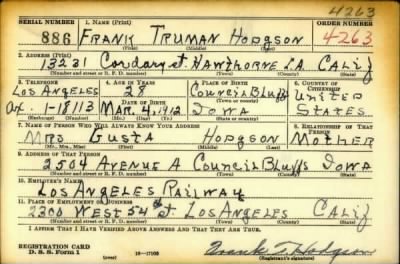 4263
SERIAL NUMBER 1. NAME (Print) ORDER NUMBER
886 FRANK TRUMAN HODGSON 4263
(First) (Middle) (Last)
2. ADDRESS (Print)
13231 Cordary st. HAWTHORNE L.A. CALIF
(Number and street or R. F. D. number) (Town) (County) (State)
3. TELEPHONE 4. AGE IN YEARS 5. PLACE OF BIRTH 6. COUNTRY OF CITIZENSHIP
LOS ANGELES 28 COUNCIL BLUFFS UNITED
DATE OF BIRTH (Town or county)
Ax. 1-18113 MAR. 4, 1912 IOWA STATES
(Exchange) (Number) (Mo.) (Day) (Yr.) (State or country)
7. NAME OF PERSON WHO WILL ALWAYS KNOW YOUR ADDRESS 8. RELATIONSHIP OF THAT PERSON
MRS GUSTA HODGSON MOTHER
(Mr., Mrs., Miss) (First) (Middle) (Last)
9. ADDRESS OF THAT PERSON
2504 AVENUE A COUNCIL BLUFFS IOWA
(Number and street or R. F. D. number) (Town) (County) (State)
10. EMPLOYER'S NAME
LOS ANGELES RAILWAY
11. PLACE OF EMPLOYMENT OR BUSINESS
2300 WEST 54th St. LOS ANGELES CALIF
(Number and street or R. F. D. number) (Town) (County) (State)
I AFFIRM THAT I HAVE VERIFIED ABOVE ANSWERS AND THAT THEY ARE TRUE.
REGISTRATION CARD
D. S. S. Form 1 (over) 16—17105 Frank T. Hodgson
(Registrant's signature)